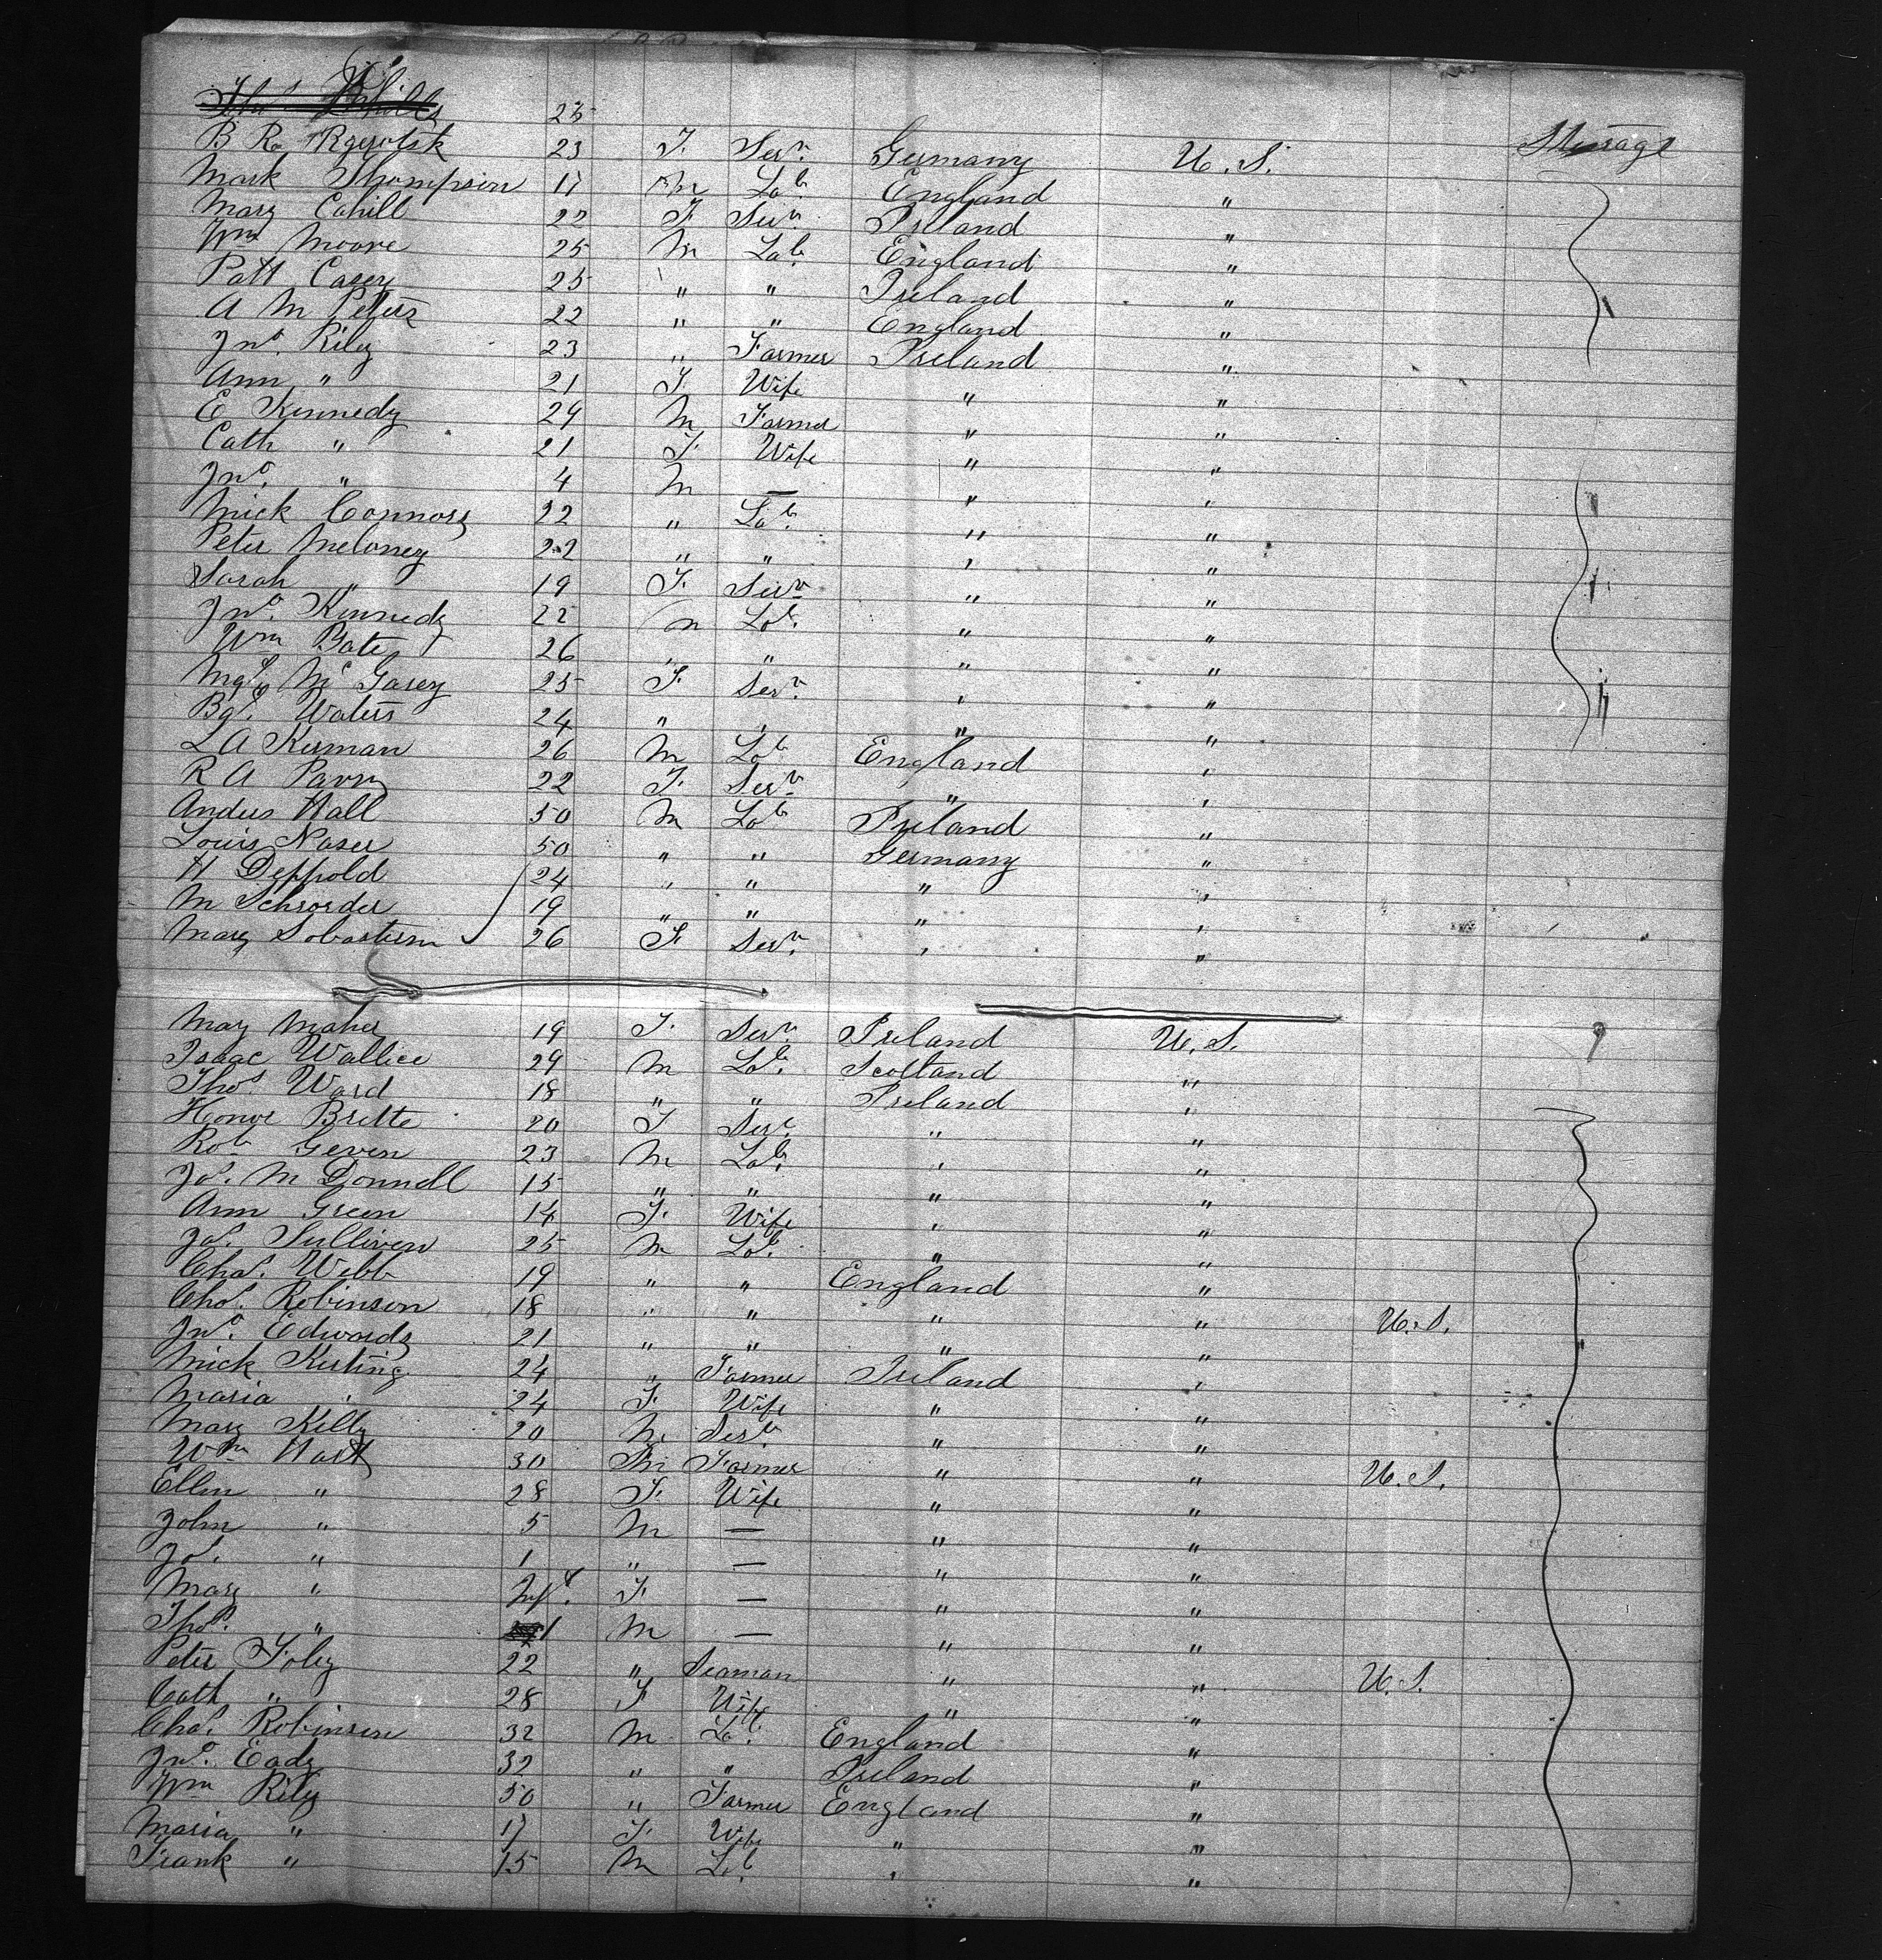 Thos 25
B R 23 F. Serv. Germany U. S. Steerage
Mark Thompson 17 m Lab. England "
Mary Cahill 22 F Serv. Ireland "
Wm Moore 25 M Lab. England "
Patt Casey 25 " " Ireland "
A M Peters 22 " " England "
Jno. Riley 23 " Farmer Ireland "
Ann " 21 F. Wife " "
E Kennedy 29 M Farmer " "
Cath " 21 F. Wife " "
Jno. " 4 M — " "
Mick Connors 22 " Lab. " "
Peter Meloney 22 " " " "
Sarah " 19 F. Serv " "
Jno. Kennedy 22 m Lab. " "
Wm Bate 26 " " " "
Mgt Mc Garey 25 F. Serv. " "
Bgt. Waters 24 " " " "
L A Kerman 26 M Lab England "
R A Parry 22 F. Serv. " "
Andus Hall 50 M Lab Ireland "
Louis Naser 50 " " Germany "
H Deppold 24 " " " "
M Schroder 19 " " " "
Mary 26 F. Serv. " "
Mary Maher 19 F. Serv. Ireland U. S.
Isaac Wallice 29 M Lab. Scotland "
Thos Ward 18 " " Ireland "
Honor Britte 20 F Serv. " "
Rob Geven 23 M Lab. " "
Jas. M Donnell 15 " " " "
Ann Green 14 F. Wife " "
Jas. Sulliven 25 M Lab. " "
Chas. Webb 19 " " England "
Chas. Robinson 18 " " " " U. S.
Jno. Edwards 21 " " " "
Mick Kerting 24 " Farmer Ireland "
Maria " 24 F. Wife " "
Mary Kelly 20 M. Serv. " "
Wm Hart 30 M Farmer " " U. S.
Ellen " 28 F. Wife " "
John " 5 M — " "
Jas. " 1 " — " "
Mary " Inft. F. — " "
Thos. " 1 M — " "
Peter Foley 22 " Seaman " " U. S.
Cath " 28 F Wife " "
Chas. Robinson 32 M Lab. England "
Jno. Eady 32 " " Ireland "
Wm Riley 50 " Farmer England "
Maria " 17 F. Wife " "
Frank " 15 M Lab. " "